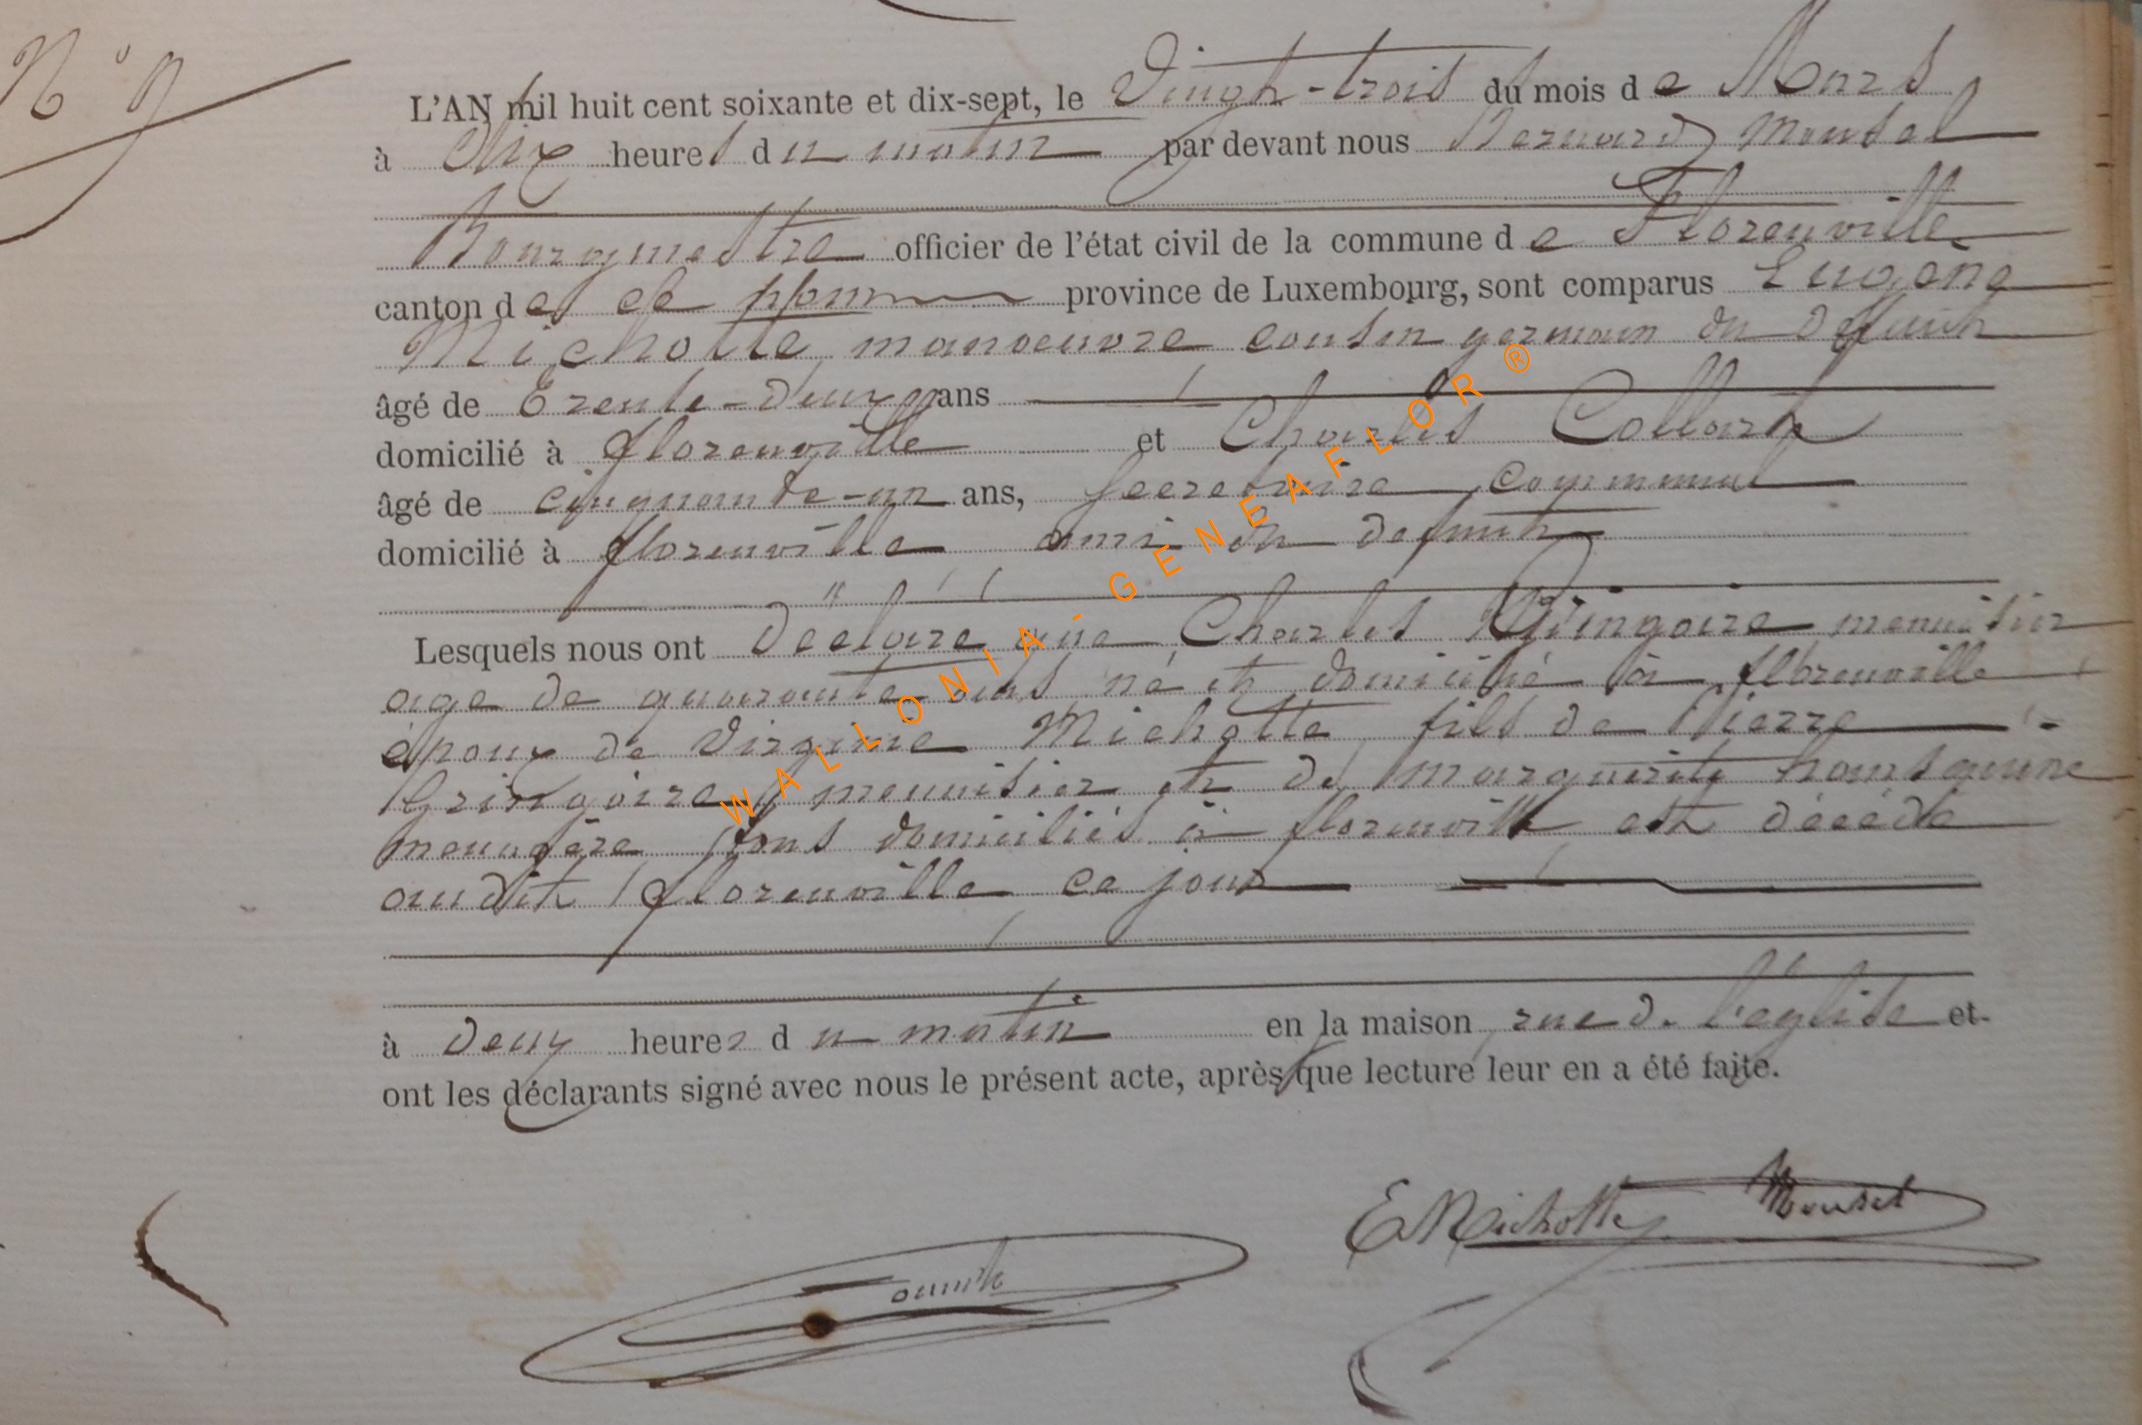 N° 9
L'AN mil huit cent soixante et dix-sept, le Vingt-trois du mois de Mars
à Dix heures du matin par devant nous Bernard Mousel
Bourgmestre officier de l'état civil de la commune de Florenville
canton d province de Luxembourg, sont comparus Eugène
Michotte manoeuvre cousin germain du défunt
âgé de Trente-deux ans
domicilié à florenville et Charles Collard
âgé de cinquante-un ans, secretaire communal
domicilié à florenville ami du defunt
Lesquels nous ont Déclaré que Charles Gringoire menuisier
age de quarante ans né et domicilié à florenville
époux de Virginie Michotte fils de Pierre
Gringoire menuisier et de marguerite
menagère tous domiciliés à florenville est décédé
audit florenville ce jour
à Deux heures du matin en la maison rue de l'église et
ont les déclarants signé avec nous le présent acte, après que lecture leur en a été faite.
EMichotte Mousel
WALLONIA - GENEAFLOR ®